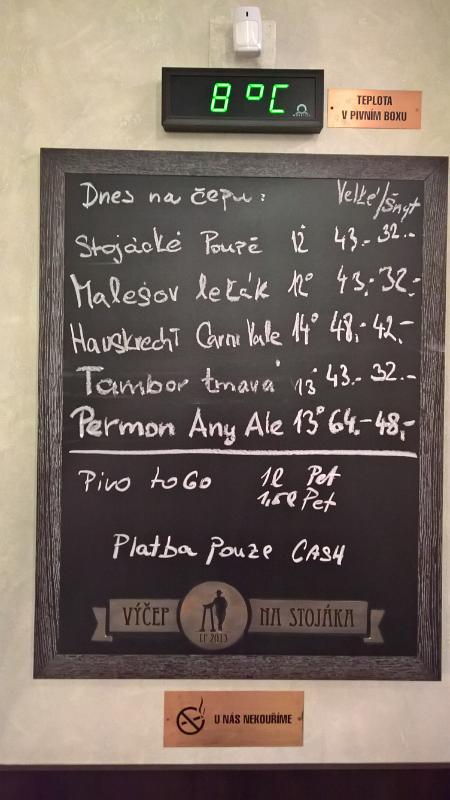 8°C
TEPLOTA
V PIVNÍM BOXU
Dnes na čepu: Velké/Šnyt
Stojácké Pouzé 12° 43.- 32.-
Malešov ležák 12° 43.- 32.-
Hauskrecht Carni Vale 14° 48.- 42.-
Tambor tmavá 13° 43.- 32.-
Permon Any Ale 13° 64.- 48,-
Pivo to Go 1l Pet
1,5l Pet
Platba Pouze CASH
VÝČEP NA STOJÁKA
LP 2013
U NÁS NEKOUŘÍME